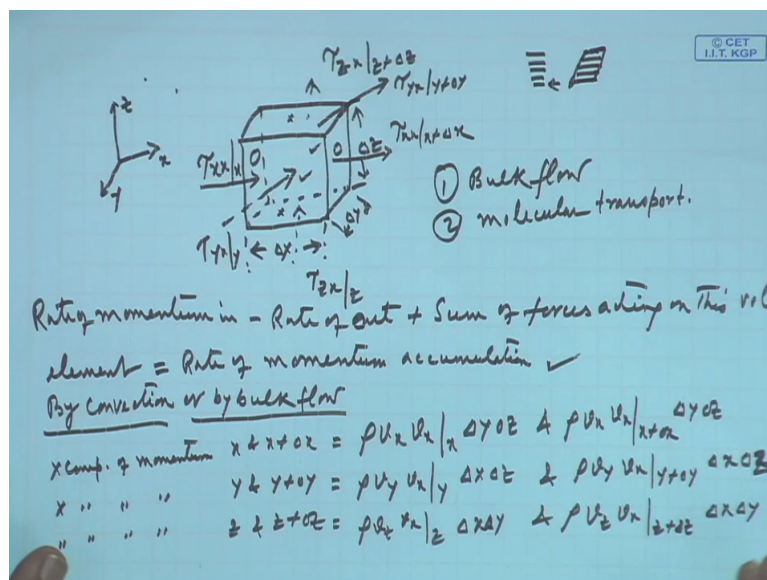 © CET
I.I.T. KGP
τzx|z+Δz
τyx|y+Δy
τxx|x+Δx
z
x
y
τxx|x
Δz
Δy
τyx|y
Δx
τzx|z
① Bulk flow
② molecular transport.
Rate of momentum in – Rate of out + Sum of forces acting on This vol
element = Rate of momentum accumulation ✓
By convection or by bulk flow
X comp. of momentum x & x+Δx = ρvx vx|x ΔyΔz & ρvx vx|x+Δx ΔyΔz
x " " " y & y+Δy = ρvy vx|y ΔxΔz & ρvy vx|y+Δy ΔxΔz
" " " " z & z+Δz = ρvz vx|z ΔxΔy & ρvz vx|z+Δz ΔxΔy